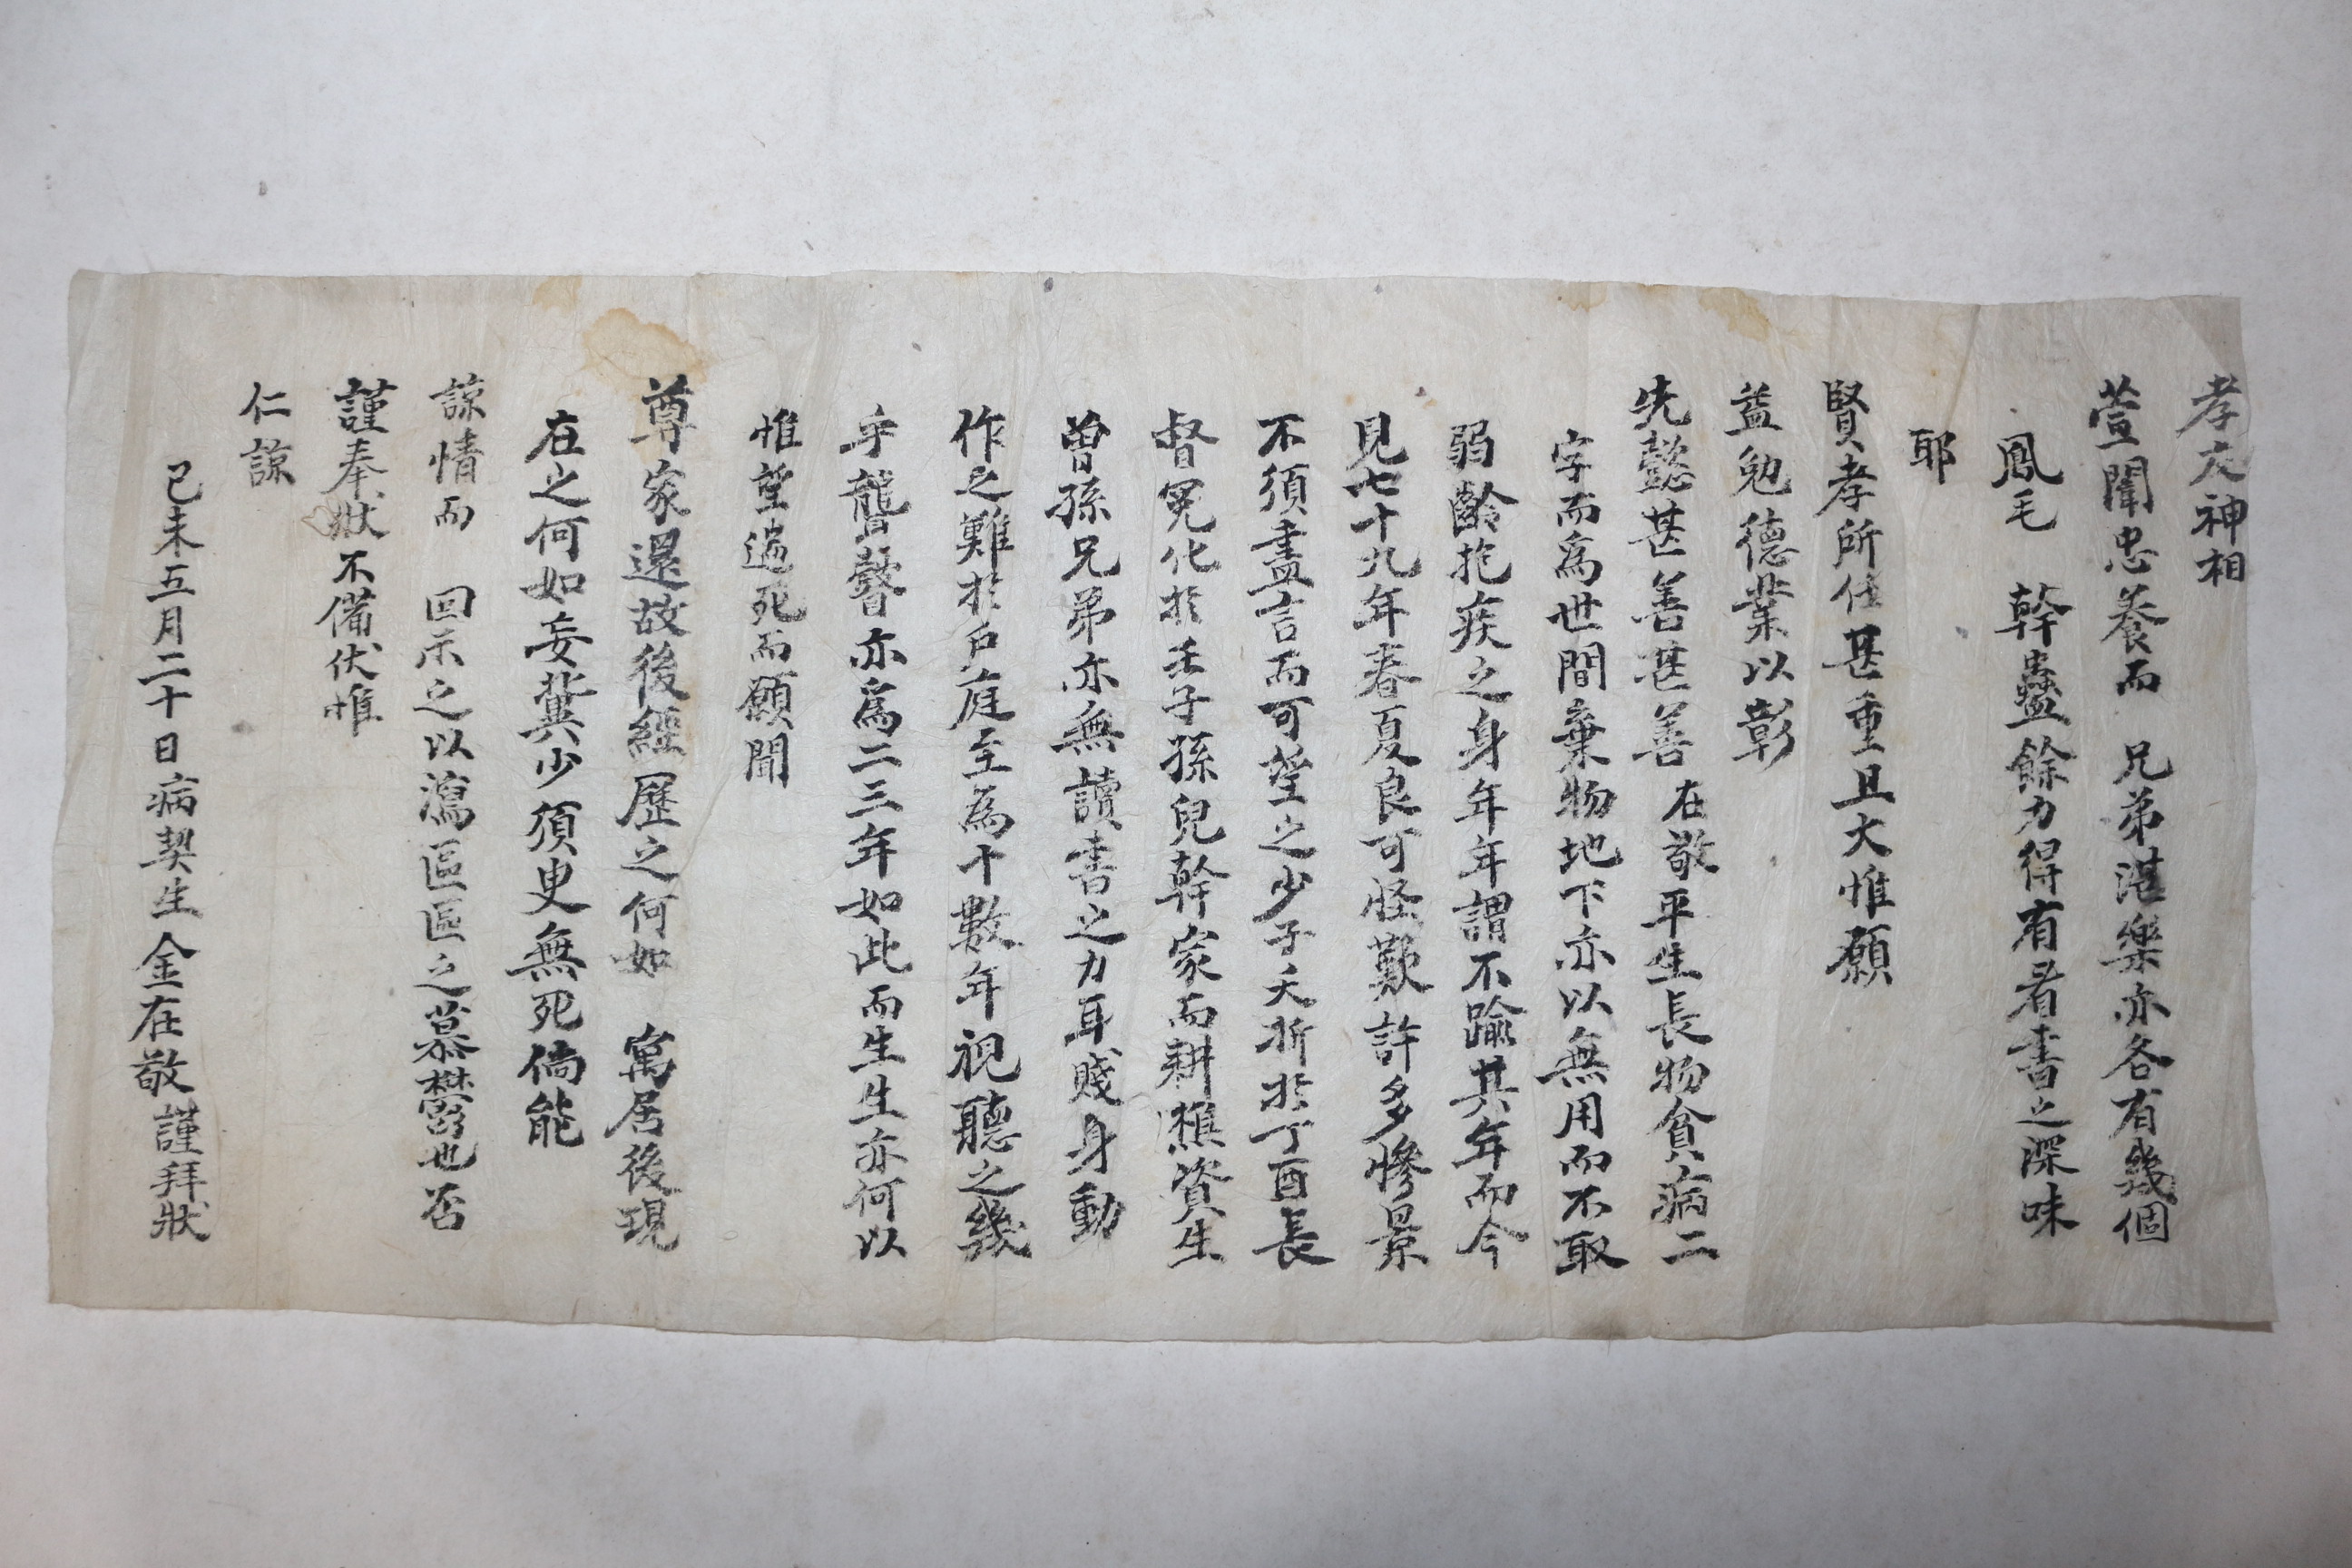 孝友神相
萱闈忠養而 兄弟湛樂亦各有幾個
鳳毛 幹蠱餘力得有看書之深味
耶
賢孝所任甚重且大惟願
益勉德業以彰
先懿甚善甚善 在敬平生長物貧病二
字而爲世間棄物地下亦以無用而不取
弱齡抱疾之身年年謂不踰其年而今
見七十九年春夏良可怪歎許多慘景
不須盡言而可望之少子夭折於丁酉長
督冤化於壬子孫兒幹家而耕樵資生
曾孫兄弟亦無讀書之力耳賤身動
作之難於戶庭至爲十數年視聽之幾
乎聾瞽亦爲二三年如此而生生亦何以
惟望遄死而願聞
尊家還故後經歷之何如 寓居後現
在之何如妄冀少須臾無死倘能
諒情而 回示之以瀉區區之慕鬱也否
謹奉狀不備伏惟
仁諒
己未五月二十日病契生金在敬謹拜狀